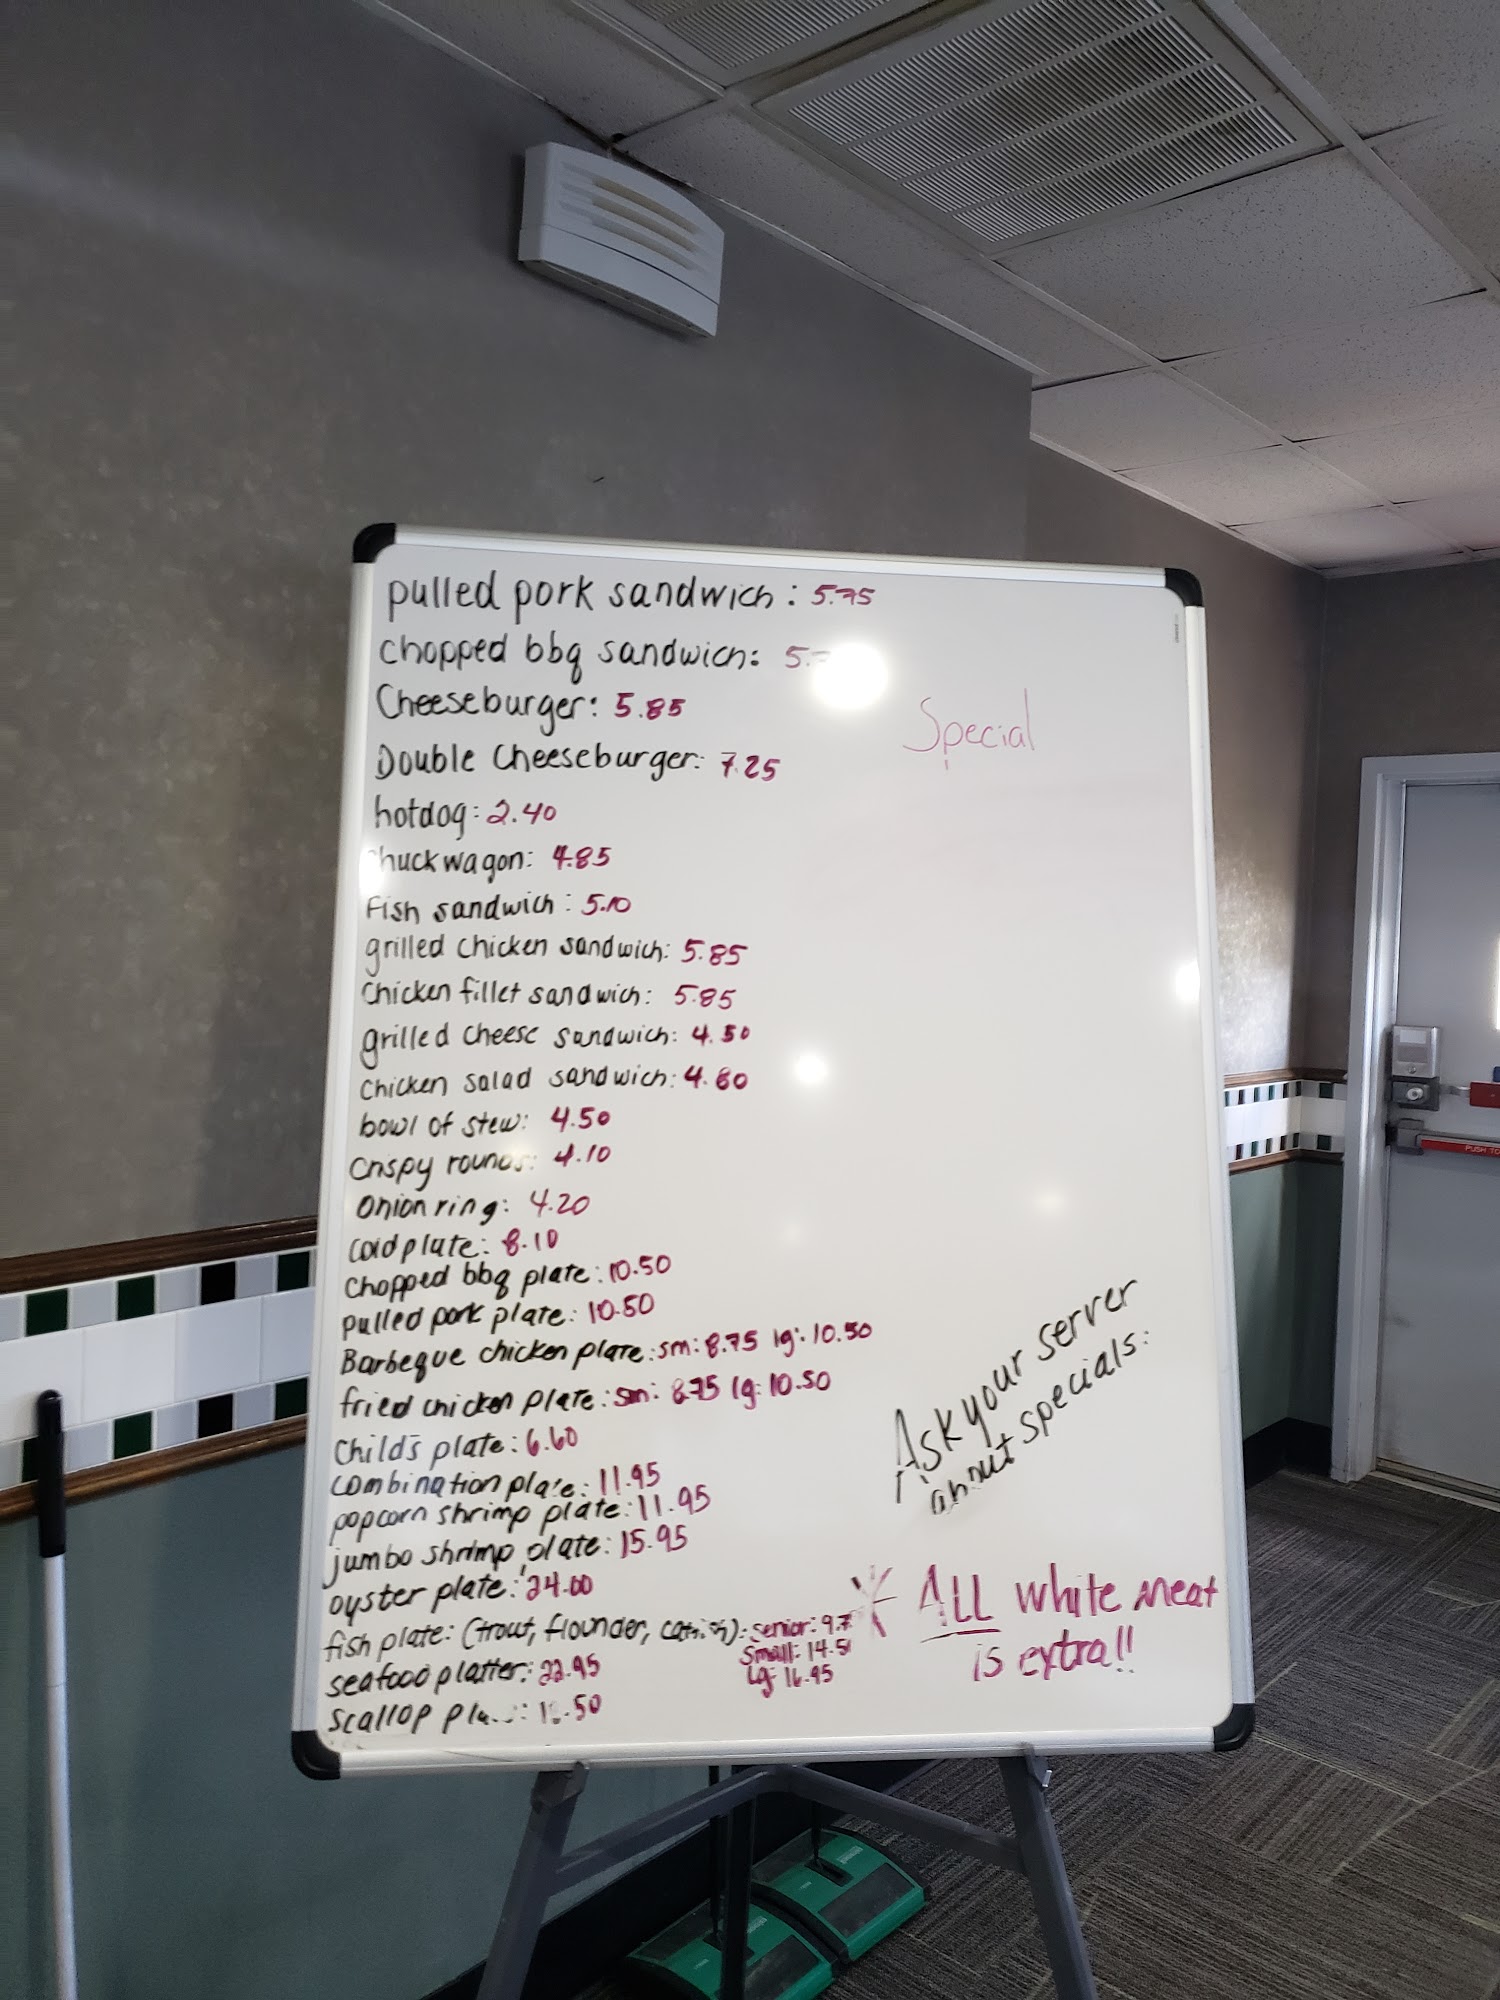 pulled pork sandwich: 5.75
chopped bbq sandwich:
Cheeseburger: 5.85
Special
Double Cheeseburger: 7.25
hotdog: 2.40
chuckwagon: 4.85
Fish sandwich: 5.10
grilled chicken sandwich: 5.85
Chicken fillet sandwich: 5.85
grilled cheese sandwich: 4.50
chicken salad sandwich: 4.80
bowl of stew: 4.50
crispy rounds: 4.10
onion ring: 4.20
cold plate: 8.10
chopped bbq plate: 10.50
pulled pork plate: 10.50
Barbeque chicken plate: sm: 8.75 lg: 10.50
fried chicken plate: sm: 8.75 lg: 10.50
Child's plate: 6.60
combination plate: 11.95
popcorn shrimp plate: 11.95
jumbo shrimp plate: 15.95
oyster plate: 24.00
fish plate: (trout, flounder, catfish): senior:
Small:
Lg: 16.95
seafood platter: 22.95
scallop
Ask your server
about specials:
* ALL white meat
is extra!!
PUSH TO